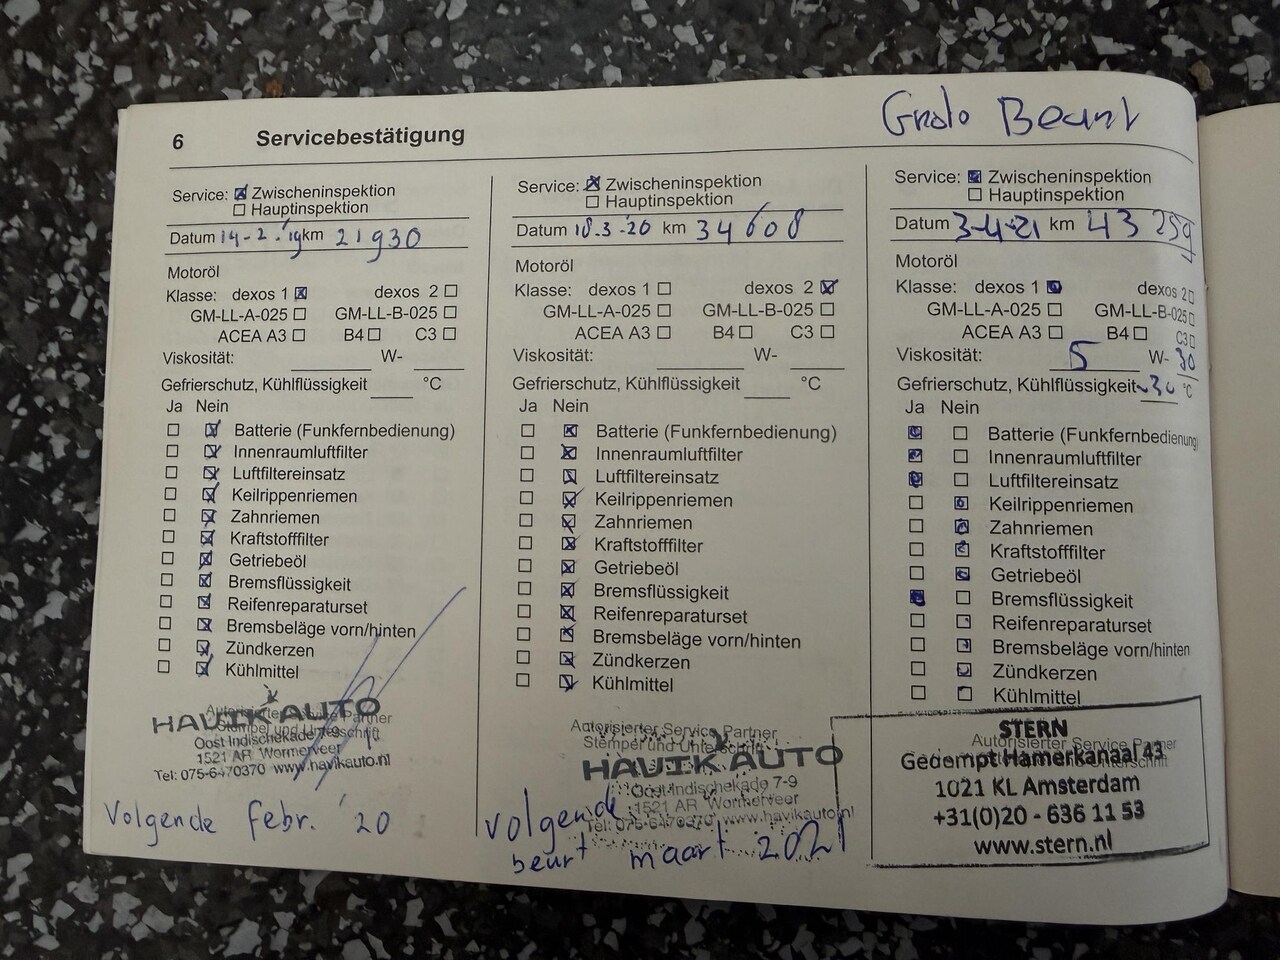 6 Servicebestätigung
Service: Zwischeninspektion
Hauptinspektion
Datum 14-2-'19 km 21930
Motoröl
Klasse: dexos 1 dexos 2
GM-LL-A-025 GM-LL-B-025
ACEA A3 B4 C3
Viskosität: W-
Gefrierschutz, Kühlflüssigkeit °C
Ja Nein
Batterie (Funkfernbedienung)
Innenraumluftfilter
Luftfiltereinsatz
Keilrippenriemen
Zahnriemen
Kraftstofffilter
Getriebeöl
Bremsflüssigkeit
Reifenreparaturset
Bremsbeläge vorn/hinten
Zündkerzen
Kühlmittel
HAVIK AUTO
Autorisierter Service Partner
Stempel und Unterschrift
Oost Indischekade 7-9
1521 AR Wormerveer
Tel: 075-6470370 www.havikauto.nl
Volgende febr. '20
Service: Zwischeninspektion
Hauptinspektion
Datum 18-3-'20 km 34608
Motoröl
Klasse: dexos 1 dexos 2
GM-LL-A-025 GM-LL-B-025
ACEA A3 B4 C3
Viskosität: W-
Gefrierschutz, Kühlflüssigkeit °C
Ja Nein
Batterie (Funkfernbedienung)
Innenraumluftfilter
Luftfiltereinsatz
Keilrippenriemen
Zahnriemen
Kraftstofffilter
Getriebeöl
Bremsflüssigkeit
Reifenreparaturset
Bremsbeläge vorn/hinten
Zündkerzen
Kühlmittel
Autorisierter Service Partner
Stempel und Unterschrift
HAVIK AUTO
Oost Indischekade 7-9
1521 AR Wormerveer
Tel: 075-6470370 www.havikauto.nl
Volgende
beurt maart 2021
Beurt
Service: Zwischeninspektion
Hauptinspektion
Datum 3-4-21 km 43259
Motoröl
Klasse: dexos 1 dexos 2
GM-LL-A-025 GM-LL-B-025
ACEA A3 B4 C3
Viskosität: 5 W-30
Gefrierschutz, Kühlflüssigkeit -30 °C
Ja Nein
Batterie (Funkfernbedienung)
Innenraumluftfilter
Luftfiltereinsatz
Keilrippenriemen
Zahnriemen
Kraftstofffilter
Getriebeöl
Bremsflüssigkeit
Reifenreparaturset
Bremsbeläge vorn/hinten
Zündkerzen
Kühlmittel
STERN
Autorisierter Service Partner
Gedempt Hamerkanaal 43
Unterschrift
1021 KL Amsterdam
+31(0)20 - 636 11 53
www.stern.nl